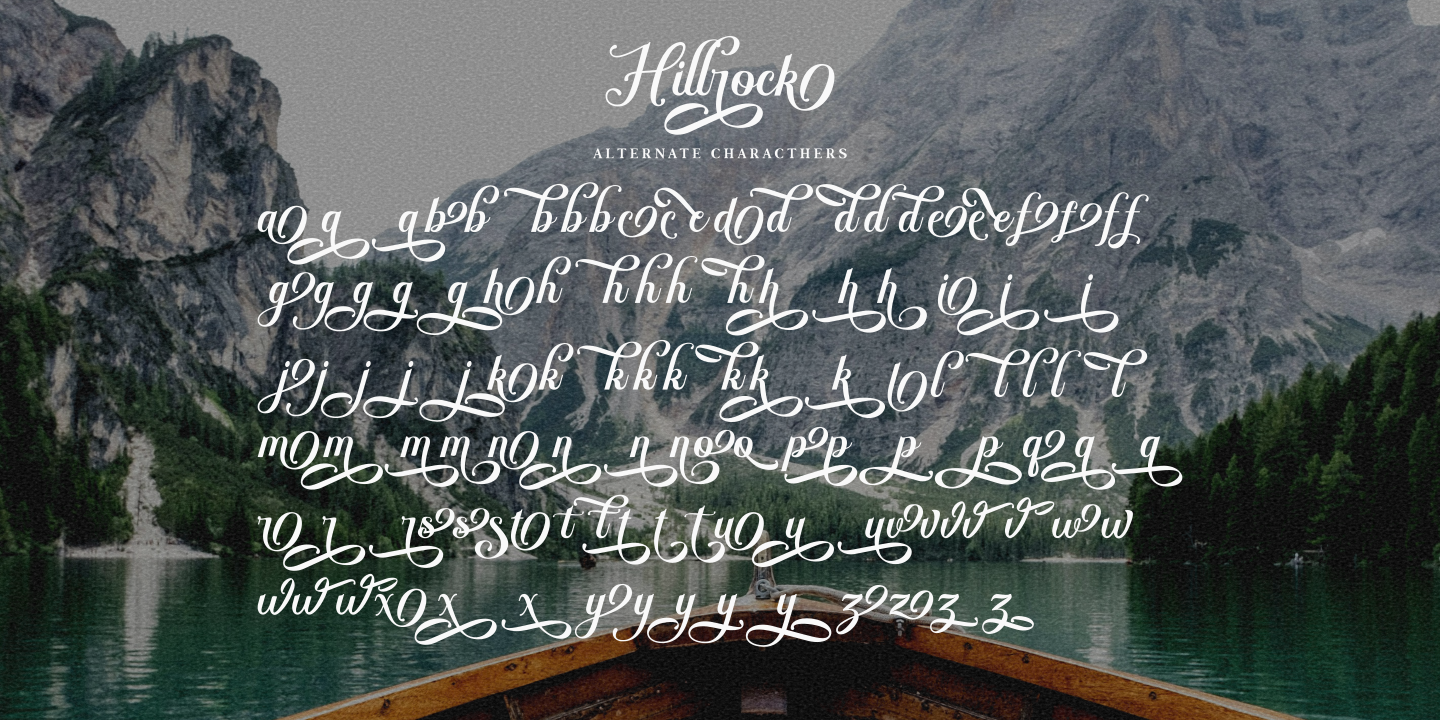 Hillrock
ALTERNATE CHARACTHERS
a a a b b b b b c c c d d d d d e e e f f f f
g g g g g h h h h h h h h h i i i
j j j j j k k k k k k k k l l l l l l
m m m m n n n n o o p p p p q q q
r r r s s s t t t t t t u u u v v v v v w w
w w w x x x y y y y y z z z z